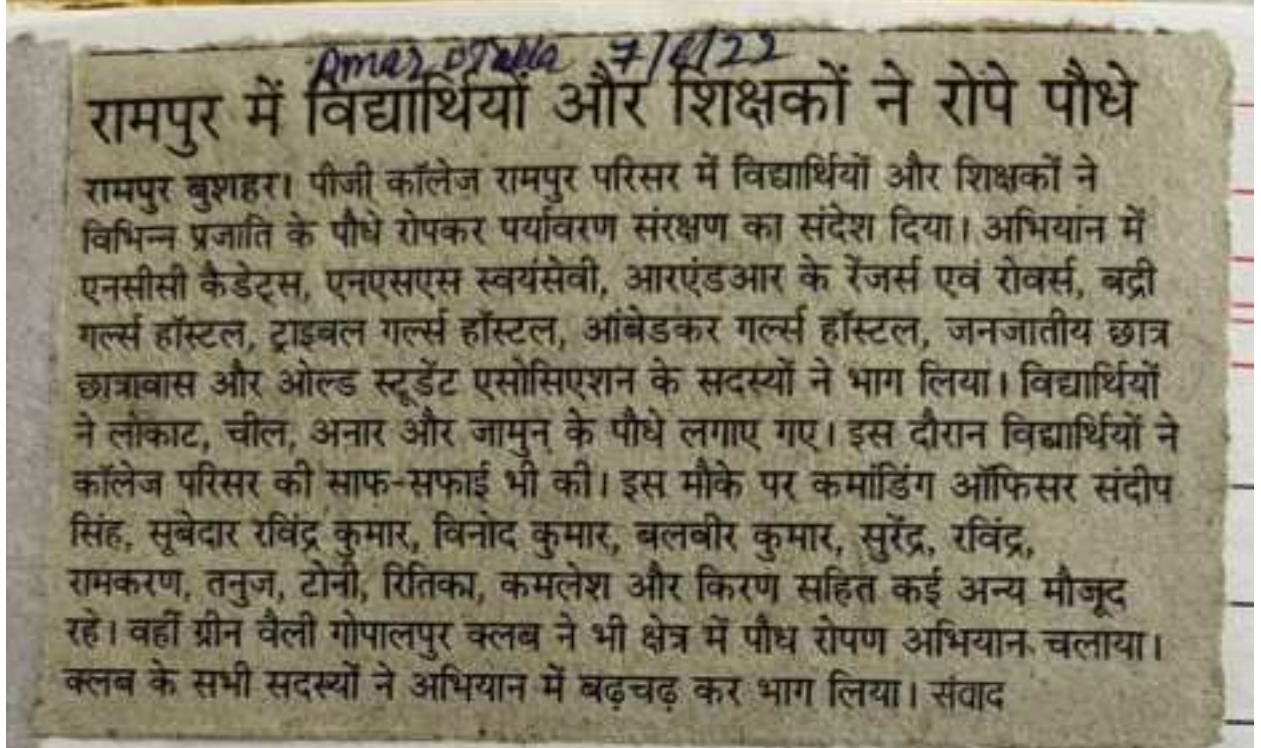 Amar Ujala 7/6/22
रामपुर में विद्यार्थियों और शिक्षकों ने रोपे पौधे
रामपुर बुशहर। पीजी कॉलेज रामपुर परिसर में विद्यार्थियों और शिक्षकों ने
विभिन्न प्रजाति के पौधे रोपकर पर्यावरण संरक्षण का संदेश दिया। अभियान में
एनसीसी कैडेट्स, एनएसएस स्वयंसेवी, आरएंडआर के रेंजर्स एवं रोवर्स, बद्री
गर्ल्स हॉस्टल, ट्राइबल गर्ल्स हॉस्टल, आंबेडकर गर्ल्स हॉस्टल, जनजातीय छात्र
छात्रावास और ओल्ड स्टूडेंट एसोसिएशन के सदस्यों ने भाग लिया। विद्यार्थियों
ने लोकाट, चील, अनार और जामुन के पौधे लगाए गए। इस दौरान विद्यार्थियों ने
कॉलेज परिसर की साफ-सफाई भी की। इस मौके पर कमांडिंग ऑफिसर संदीप
सिंह, सूबेदार रविंद्र कुमार, विनोद कुमार, बलबीर कुमार, सुरेंद्र, रविंद्र,
रामकरण, तनुज, टोनी, रितिका, कमलेश और किरण सहित कई अन्य मौजूद
रहे। वहीं ग्रीन वैली गोपालपुर क्लब ने भी क्षेत्र में पौध रोपण अभियान चलाया।
क्लब के सभी सदस्यों ने अभियान में बढ़चढ़ कर भाग लिया। संवाद